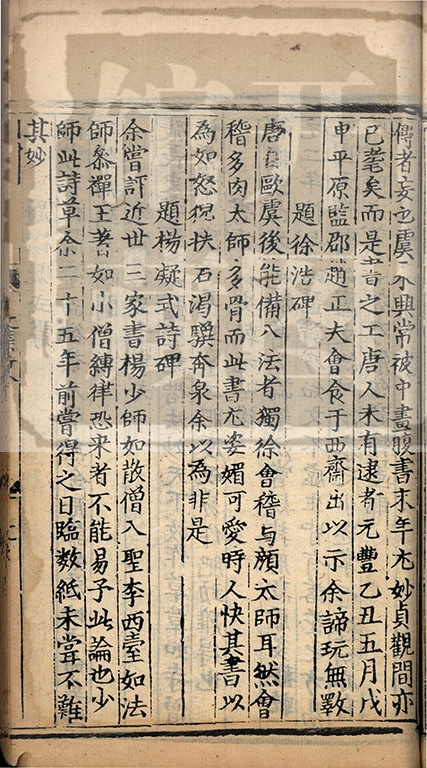 傳者妄也虞永興常被中畫腹書末年尤妙貞觀間亦
已耄矣而是書之工唐人未有逮者元豐乙丑五月戊
申平原監郡趙正夫會食于西齋出以示余諦玩無斁
題徐浩碑
唐自歐虞後能備八法者獨徐會稽与顔太師耳然會
稽多肉太師多骨而此書尤姿媚可愛時人快其書以
為如怒猊抉石渴驥奔泉余以為非是
題楊凝式詩碑
余嘗評近世三家書楊少師如散僧入聖李西臺如法
師叅禪王著如小僧縛律恐来者不能易予此論也少
師此詩草余二十五年前嘗得之日臨数紙未嘗不難
其妙